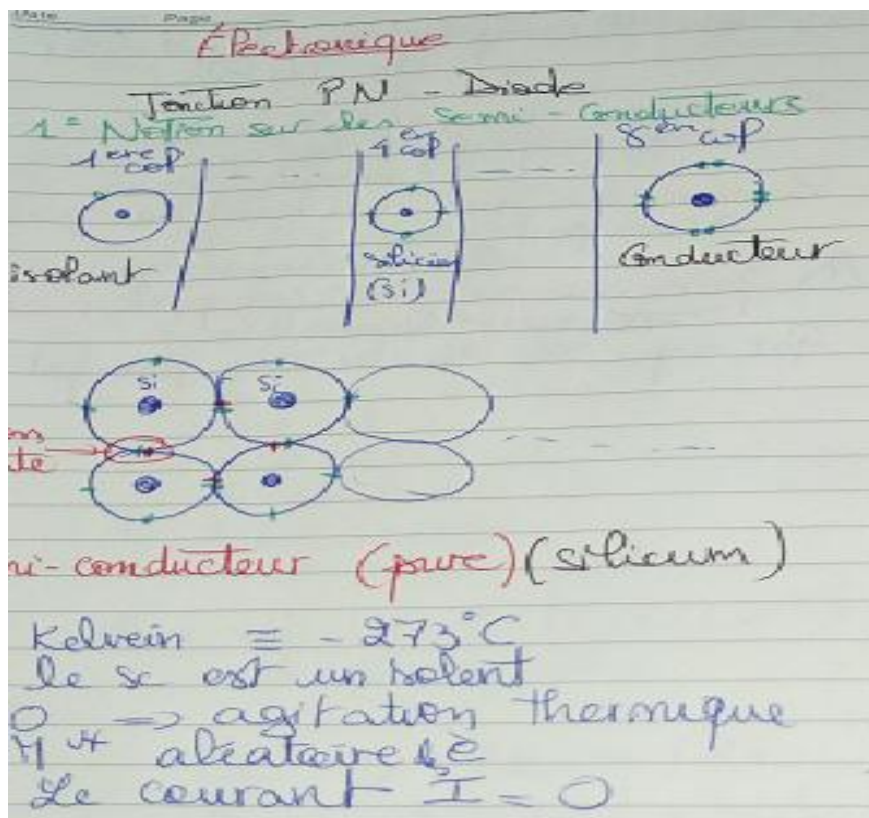 Date Page
Électronique
Jonction PN - Diode
1= Notion sur les Semi-Conducteurs
1ere col 4en col 8en col
isolant silicium (Si) Conducteur
Si Si
ns
te
ni-conducteur (pure) (silicium)
Kelvein ≡ -273°C
le sc est un isolent
0 => agitation thermique
aléatoire
Le courant I = 0